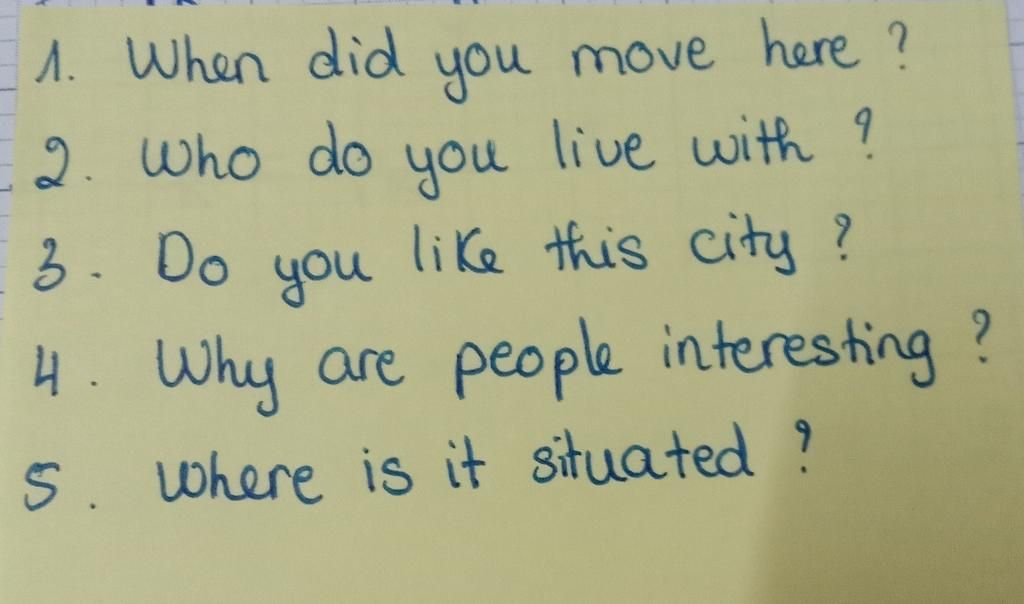 1. When did you move here ?
2. Who do you live with ?
3. Do you like this city ?
4. Why are people interesting ?
5. Where is it situated ?